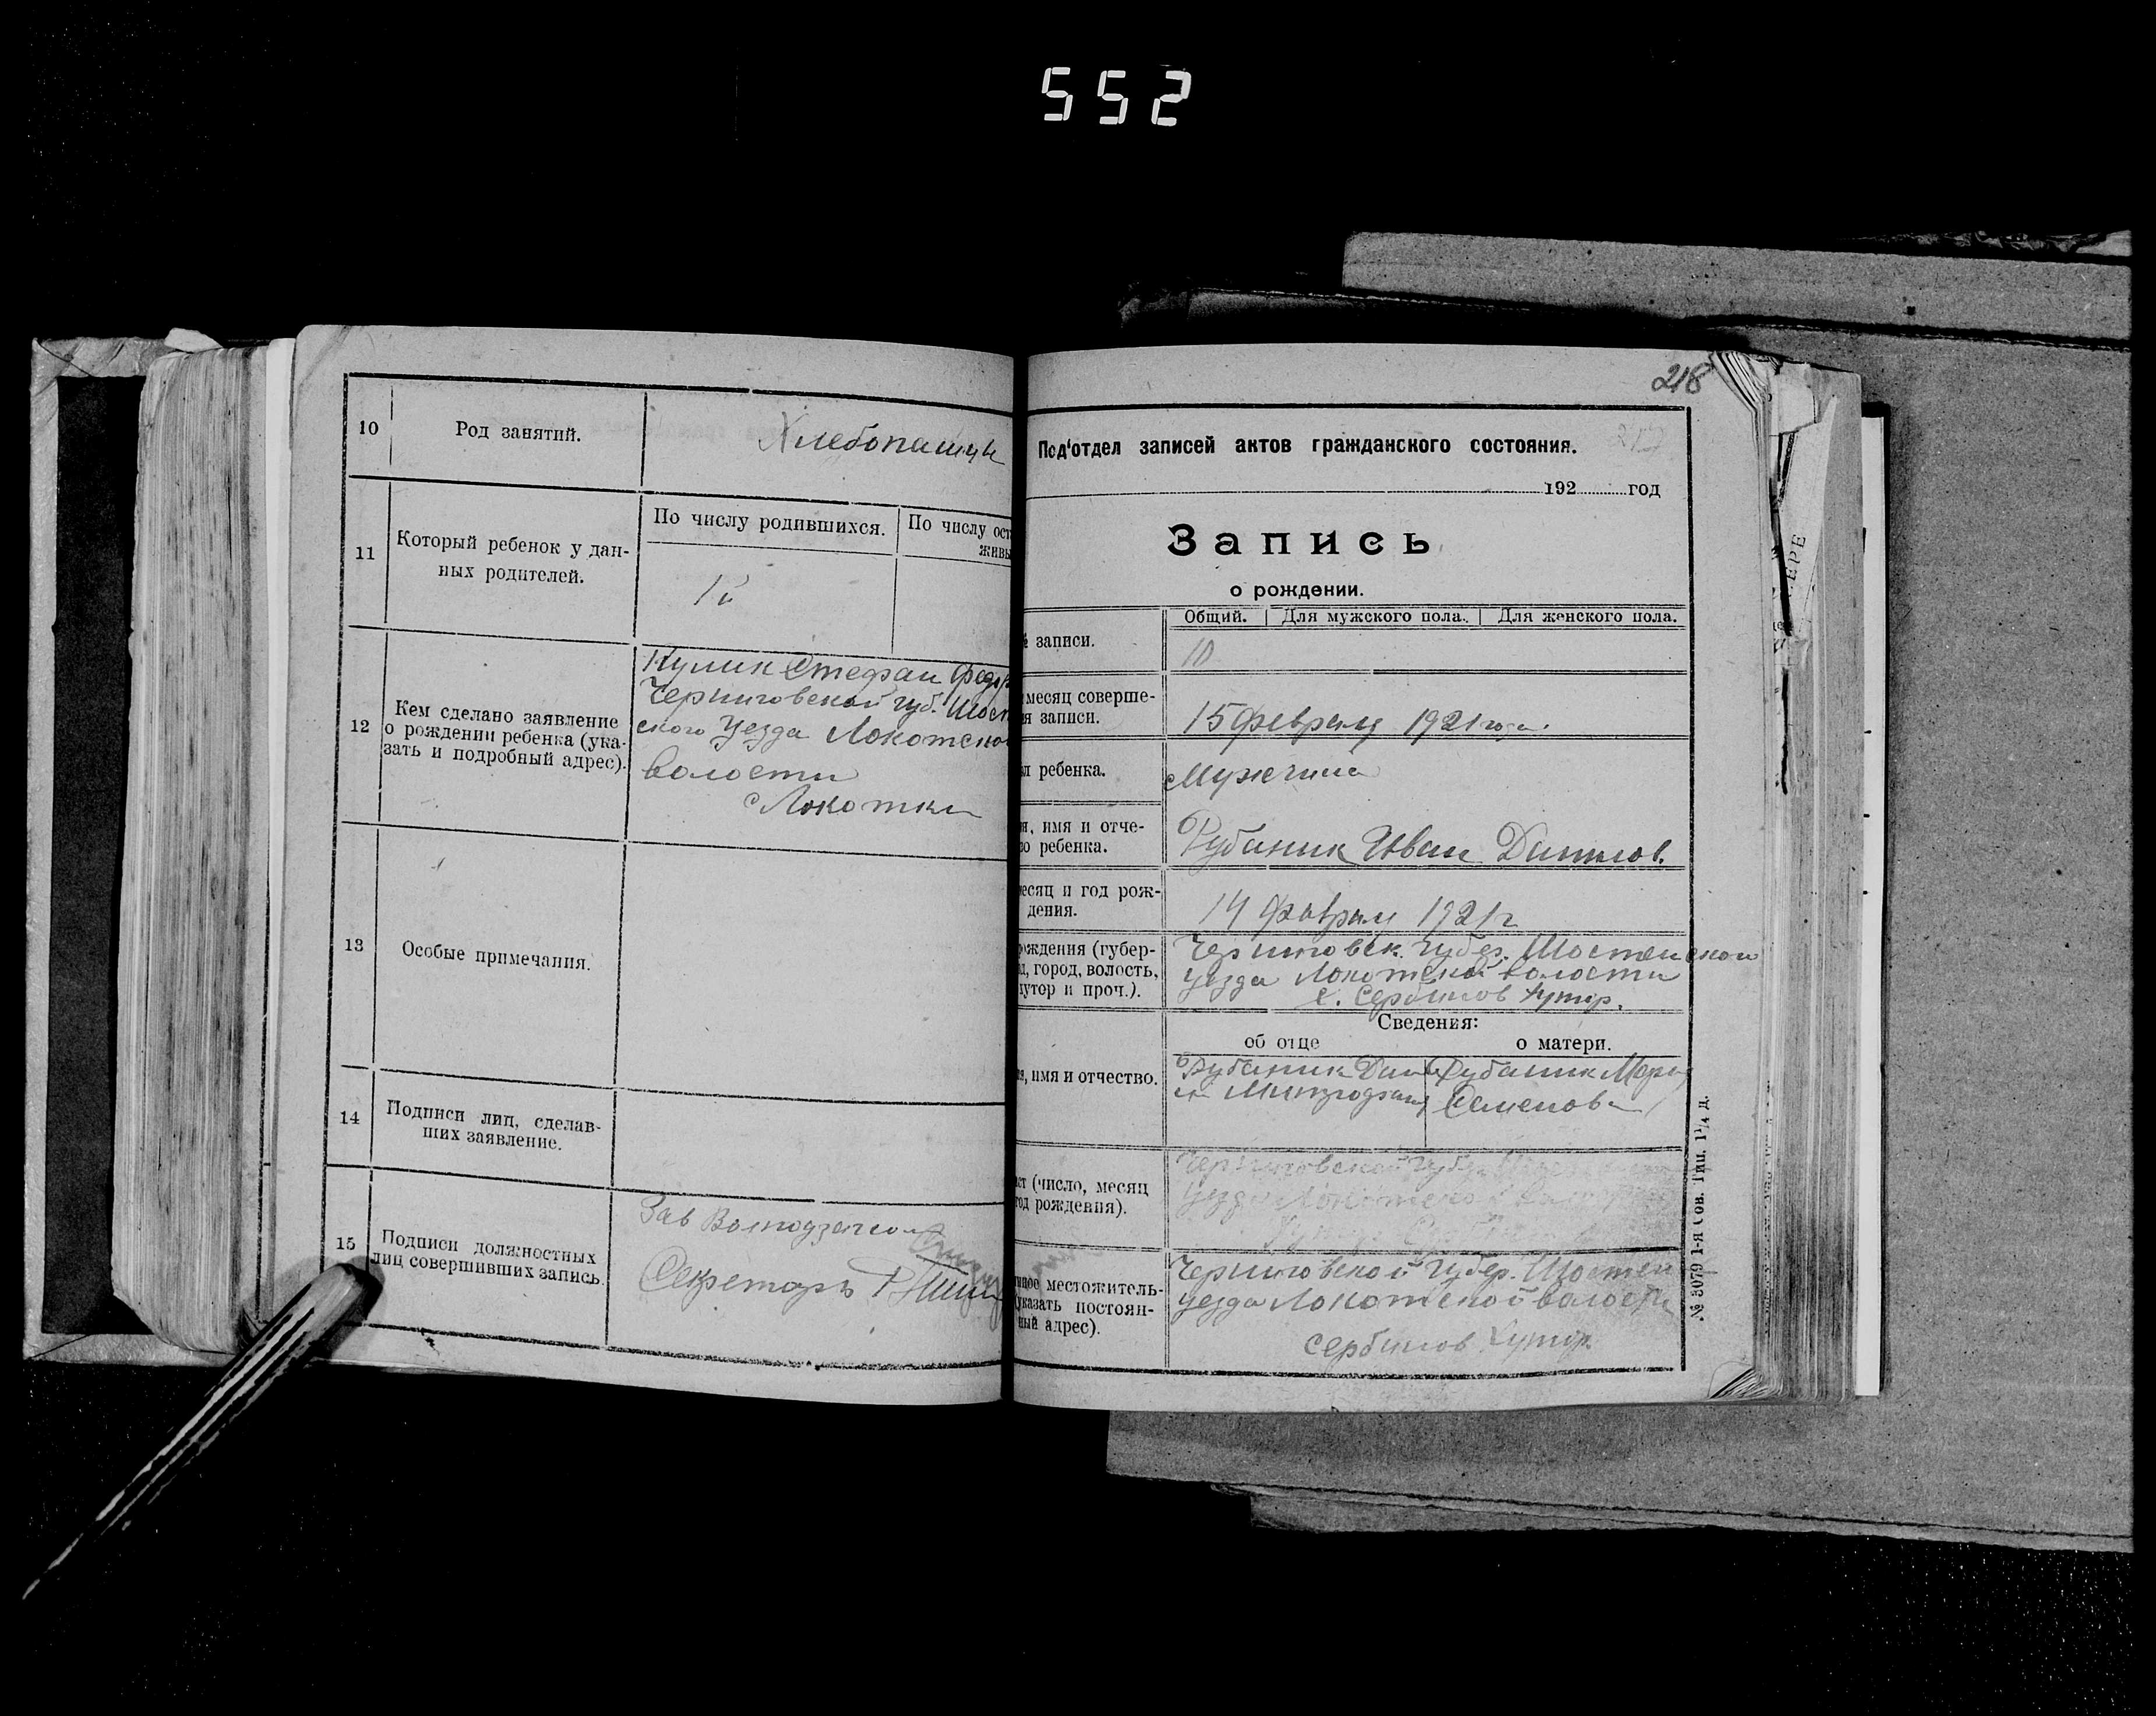 552
10
Род занятий.
Хлебопашцы
11
Который ребенок у дан-
ных родителей.
По числу родившихся.
По числу ост
живы
1й
12
Кем сделано заявление
о рождении ребенка (ука-
зать и подробный адрес).
Кулик Стефан Федор
Черниговской губ. Шост
ского уезда Локотско
волости
с Локотки
13
Особые примечания.
14
Подписи лиц, сделав-
ших заявление.
15
Подписи должностных
лиц совершивших запись.
Зав
Секретарь
218
Под'отдел записей актов гражданского состояния.
192 год
Запись
о рождении.
Общий. Для мужского пола. Для женского пола.
№ записи.
10
месяц соверше-
я записи.
15 февраля 1921 года.
л ребенка.
Мужчина
я, имя и отче-
во ребенка.
Рубаник Иван Данилов.
месяц и год рож-
дения.
14 февраля 1921 г
рождения (губер-
д, город, волость,
хутор и проч.).
Черниговск. губер. Шостенского
уезда Локотской волости
х. Сербинов хутор.
Сведения:
об отце
о матери.
я, имя и отчество.
Рубаник Дани
ил
Рубаник Мари
Семенова
ст (число, месяц
год рождения).
Черниговской губ.
уезда Локотской волости
янное местожитель-
(указать постоян-
ный адрес).
Черниговской губер. Шостен
уезда Локотской волости
Сербинов хутор.
№ 3079 1-я Сов. Тип. 1¹/₄ д.